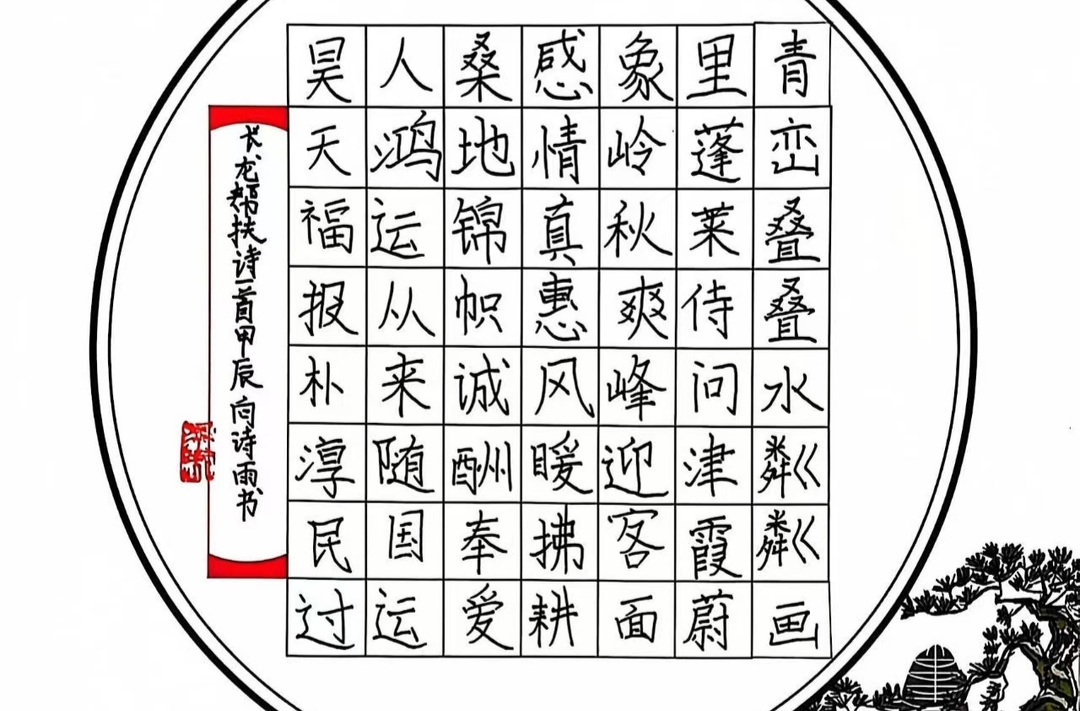 青峦叠叠水粼粼画
里蓬莱侍问津霞蔚
象岭秋爽峰迎客面
感情真惠风暖拂耕
桑地锦帜诚酬奉爱
人鸿运从来随国运
昊天福报朴淳民过
长龙帮扶诗一首甲辰向诗雨书